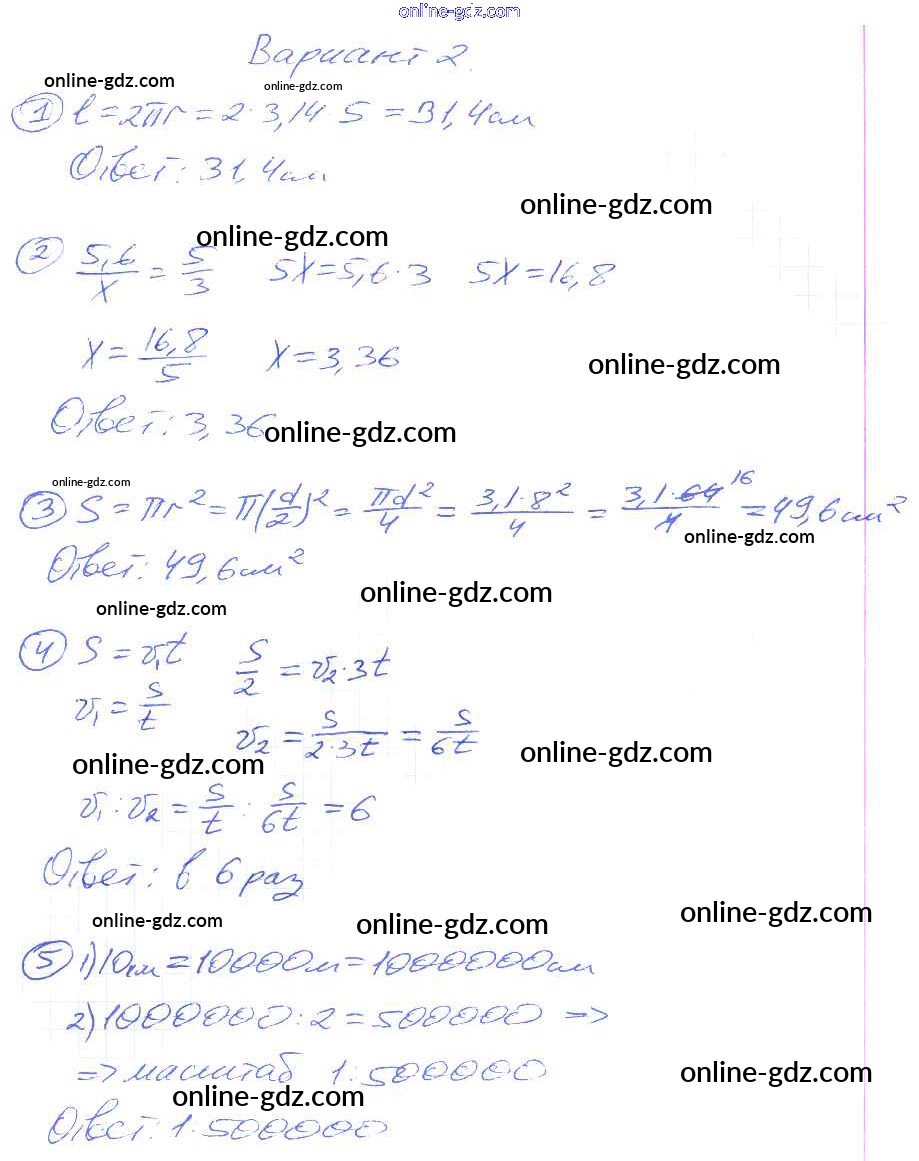 online-gdz.com
Вариант 2.
online-gdz.com online-gdz.com
① l = 2πr = 2 · 3,14 · 5 = 31,4 см
Ответ: 31,4 см
online-gdz.com
online-gdz.com
② 5,6/x = 5/3 5x = 5,6 · 3 5x = 16,8
x = 16,8/5 x = 3,36
online-gdz.com
Ответ: 3,36
online-gdz.com
online-gdz.com
③ S = πr² = π(d/2)² = πd²/4 = 3,1·8²/4 = 3,1·64/4 16 = 49,6 см²
online-gdz.com
Ответ: 49,6 см²
online-gdz.com
online-gdz.com
④ S = v₁t S/2 = v₂·3t
v₁ = S/t v₂ = S/2·3t = S/6t
online-gdz.com online-gdz.com
v₁ : v₂ = S/t : S/6t = 6
Ответ: в 6 раз
online-gdz.com online-gdz.com online-gdz.com
⑤ 1) 10 км = 10000 м = 1000000 см
2) 1000000 : 2 = 500000 =>
=> масштаб 1:500000
online-gdz.com
online-gdz.com
Ответ: 1:500000